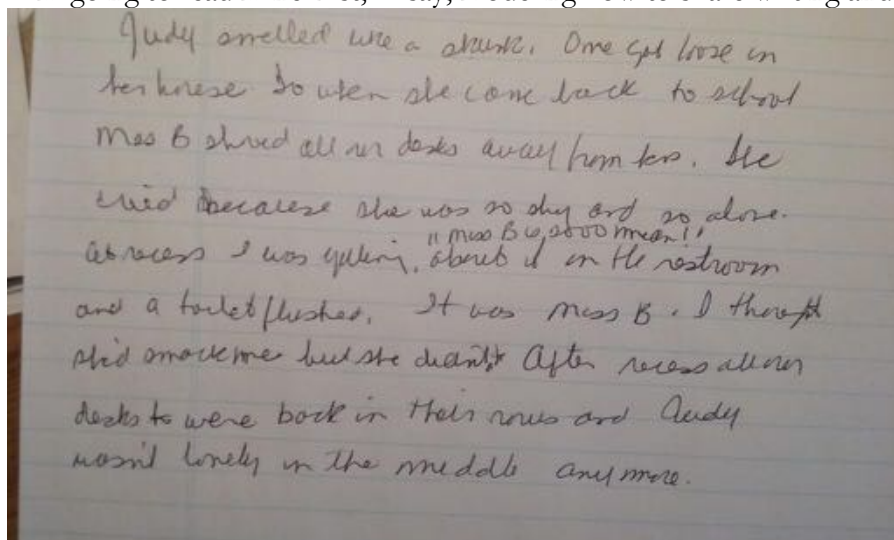 Judy smelled like a skunk. One got loose in
her house. So when she came back to school
Miss B shoved all our desks away from hers. She
cried because she was so shy and so alone.
"Miss B is sooo mean!"
At recess I was yelling, about it in the restroom
and a toilet flushes. It was Miss B. I thought
she'd smack me but she didn't. After recess all our
desks were back in their rows and Judy
wasn't lonely in the middle anymore.